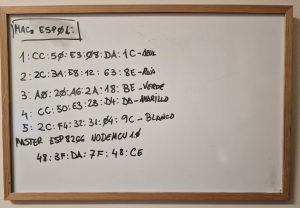 MACs ESPØ1:
1: CC:50:E3:08:DA:1C - AZUL
2: 2C:3A:E8:12:63:8E - ROJO
3: A0:20:A6:2A:18:BE - VERDE
4: CC:50:E3:2B:D4:DD - AMARILLO
5: 2C:F4:32:31:04:9C - BLANCO
MASTER ESP8266 NODEMCU 1.0
48:3F:DA:7F:48:CE